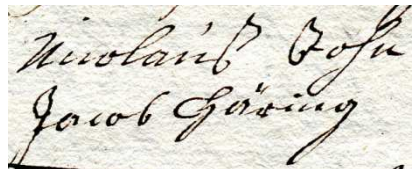 Nicolaus Sohn
Jacob Häring